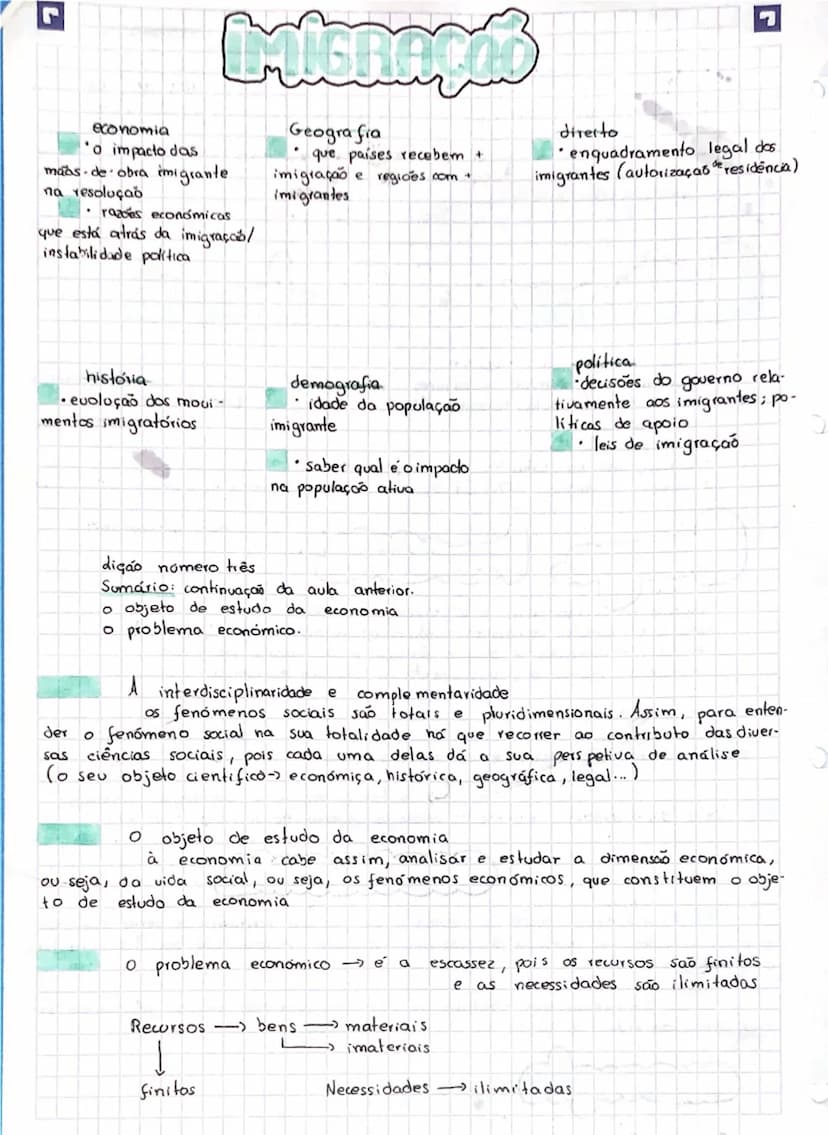 imigração
economia
• o impacto das
mãos-de-obra imigrante
na resolução
• razões económicas
que está atrás da imigração/
instabilidade política
Geografia
• que países recebem +
imigração e regiões com +
imigrantes
direito
• enquadramento legal dos
imigrantes (autorização de residência)
história
• evolução dos movi-
mentos imigratórios
demografia
• idade da população
imigrante
• saber qual é o impacto
na população ativa
política
• decisões do governo rela-
tivamente aos imigrantes; po-
líticas de apoio
• leis de imigração
lição número três
Sumário: continuação da aula anterior.
o objeto de estudo da economia
o problema económico.
A interdisciplinaridade e complementaridade
os fenómenos sociais são totais e pluridimensionais. Assim, para enten-
der o fenómeno social na sua totalidade há que recorrer ao contributo das diver-
sas ciências sociais, pois cada uma delas dá a sua perspetiva de análise
(o seu objeto científico → económica, histórica, geográfica, legal...)
O objeto de estudo da economia
à economia cabe assim, analisar e estudar a dimensão económica,
ou seja, da vida social, ou seja, os fenómenos económicos, que constituem o obje-
to de estudo da economia
O problema económico → é a escassez, pois os recursos são finitos
e as necessidades são ilimitadas
Recursos → bens → materiais
→ imateriais
↓
finitos
Necessidades → ilimitadas